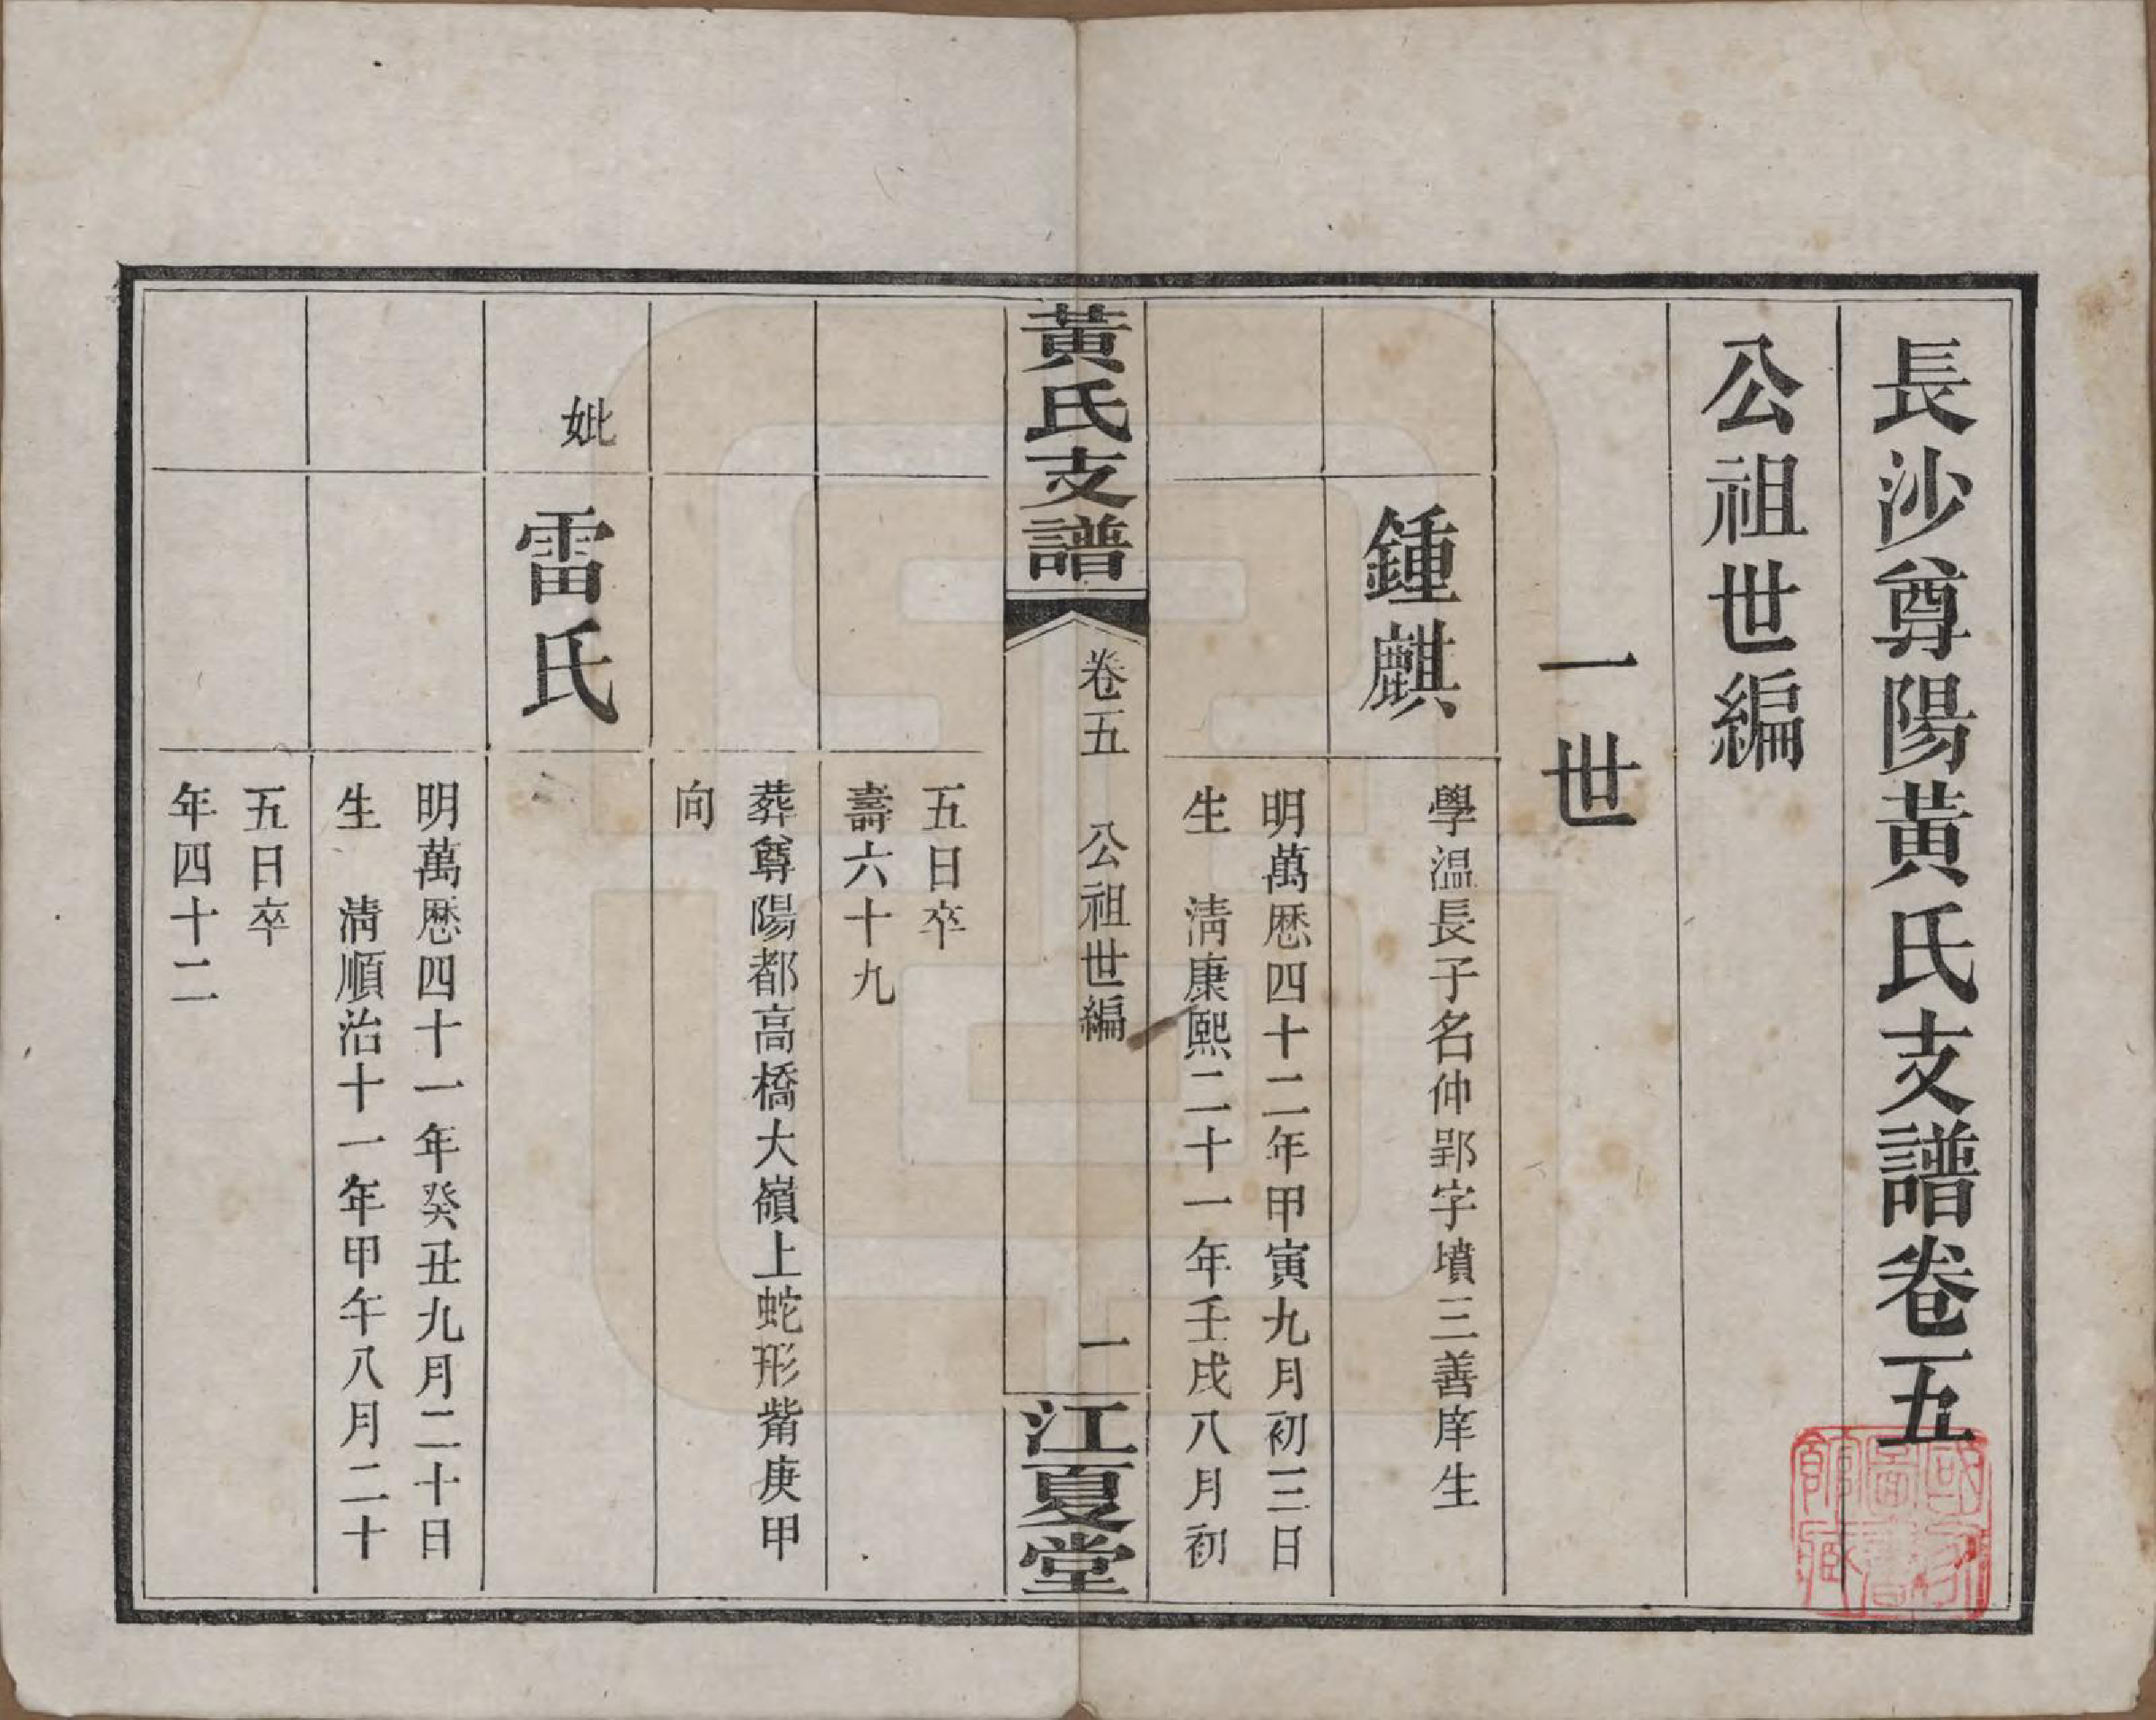 長沙尊陽黃氏支譜卷五
公祖世編
一世
鍾麒
學温長子名仲郢字墳三善庠生
明萬厯四十二年甲寅九月初三日
生　淸康熙二十一年壬戌八月初
黃氏支譜
卷五　公祖世編
一
江夏堂
五日卒
壽六十九
葬尊陽都高橋大嶺上蛇形觜庚甲
向
妣
雷氏
明萬厯四十一年癸丑九月二十日
生　淸順治十一年甲午八月二十
五日卒
年四十二
國家圖書館藏